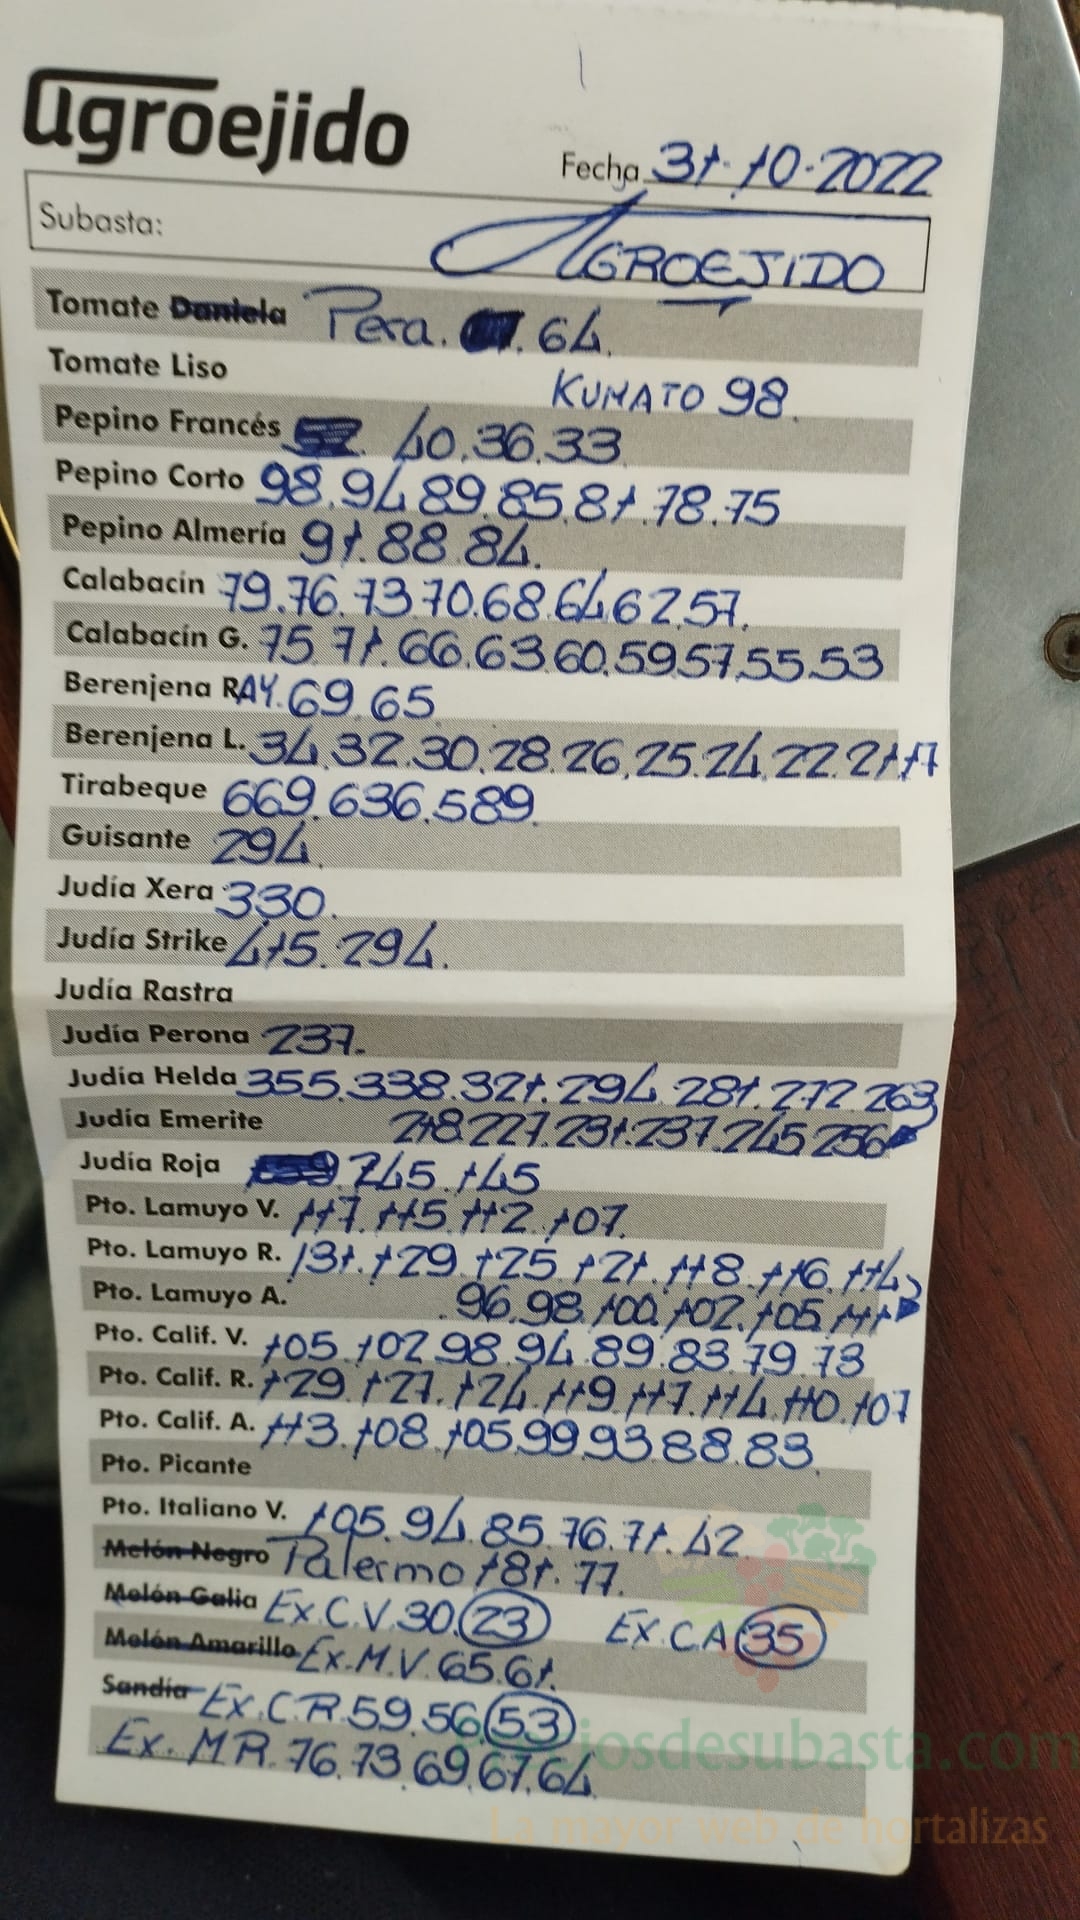 agroejido
Fecha 31-10-2022
Subasta: AGROEJIDO
Tomate Daniela Pera. 64.
Tomate Liso KUMATO 98.
Pepino Francés 40.36.33
Pepino Corto 98.94.89.85.81.78.75
Pepino Almería 91.88.84.
Calabacín 79.76.73.70.68.64.62.57.
Calabacín G. 75.71.66.63.60.59.57.55.53
Berenjena RAY. 69.65
Berenjena L. 34.32.30.28.26.25.24.22.21.17
Tirabeque 669.636.589.
Guisante 294.
Judía Xera 330.
Judía Strike 415.294.
Judía Rastra
Judía Perona 237.
Judía Helda 355.338.321.294.281.272.263
Judía Emerite 218.227.231.237.245.256
Judía Roja 745.145
Pto. Lamuyo V. 117.115.112.107.
Pto. Lamuyo R. 131.129.125.121.118.116.114
Pto. Lamuyo A. 96.98.100.102.105.111
Pto. Calif. V. 105.102.98.94.89.83.79.73
Pto. Calif. R. 129.127.124.119.117.114.110.107
Pto. Calif. A. 113.108.105.99.93.88.83.
Pto. Picante
Pto. Italiano V. 105.94.85.76.71.42.
Melón Negro Palermo 181.77.
Melón Galia Ex.C.V.30.23 EX.CA 35
Melón Amarillo Ex.M.V.65.61.
Sandía Ex.C.R.59.56.53
Ex. MR.76.73.69.67.64
preciosdesubasta.com
La mayor web de hortalizas